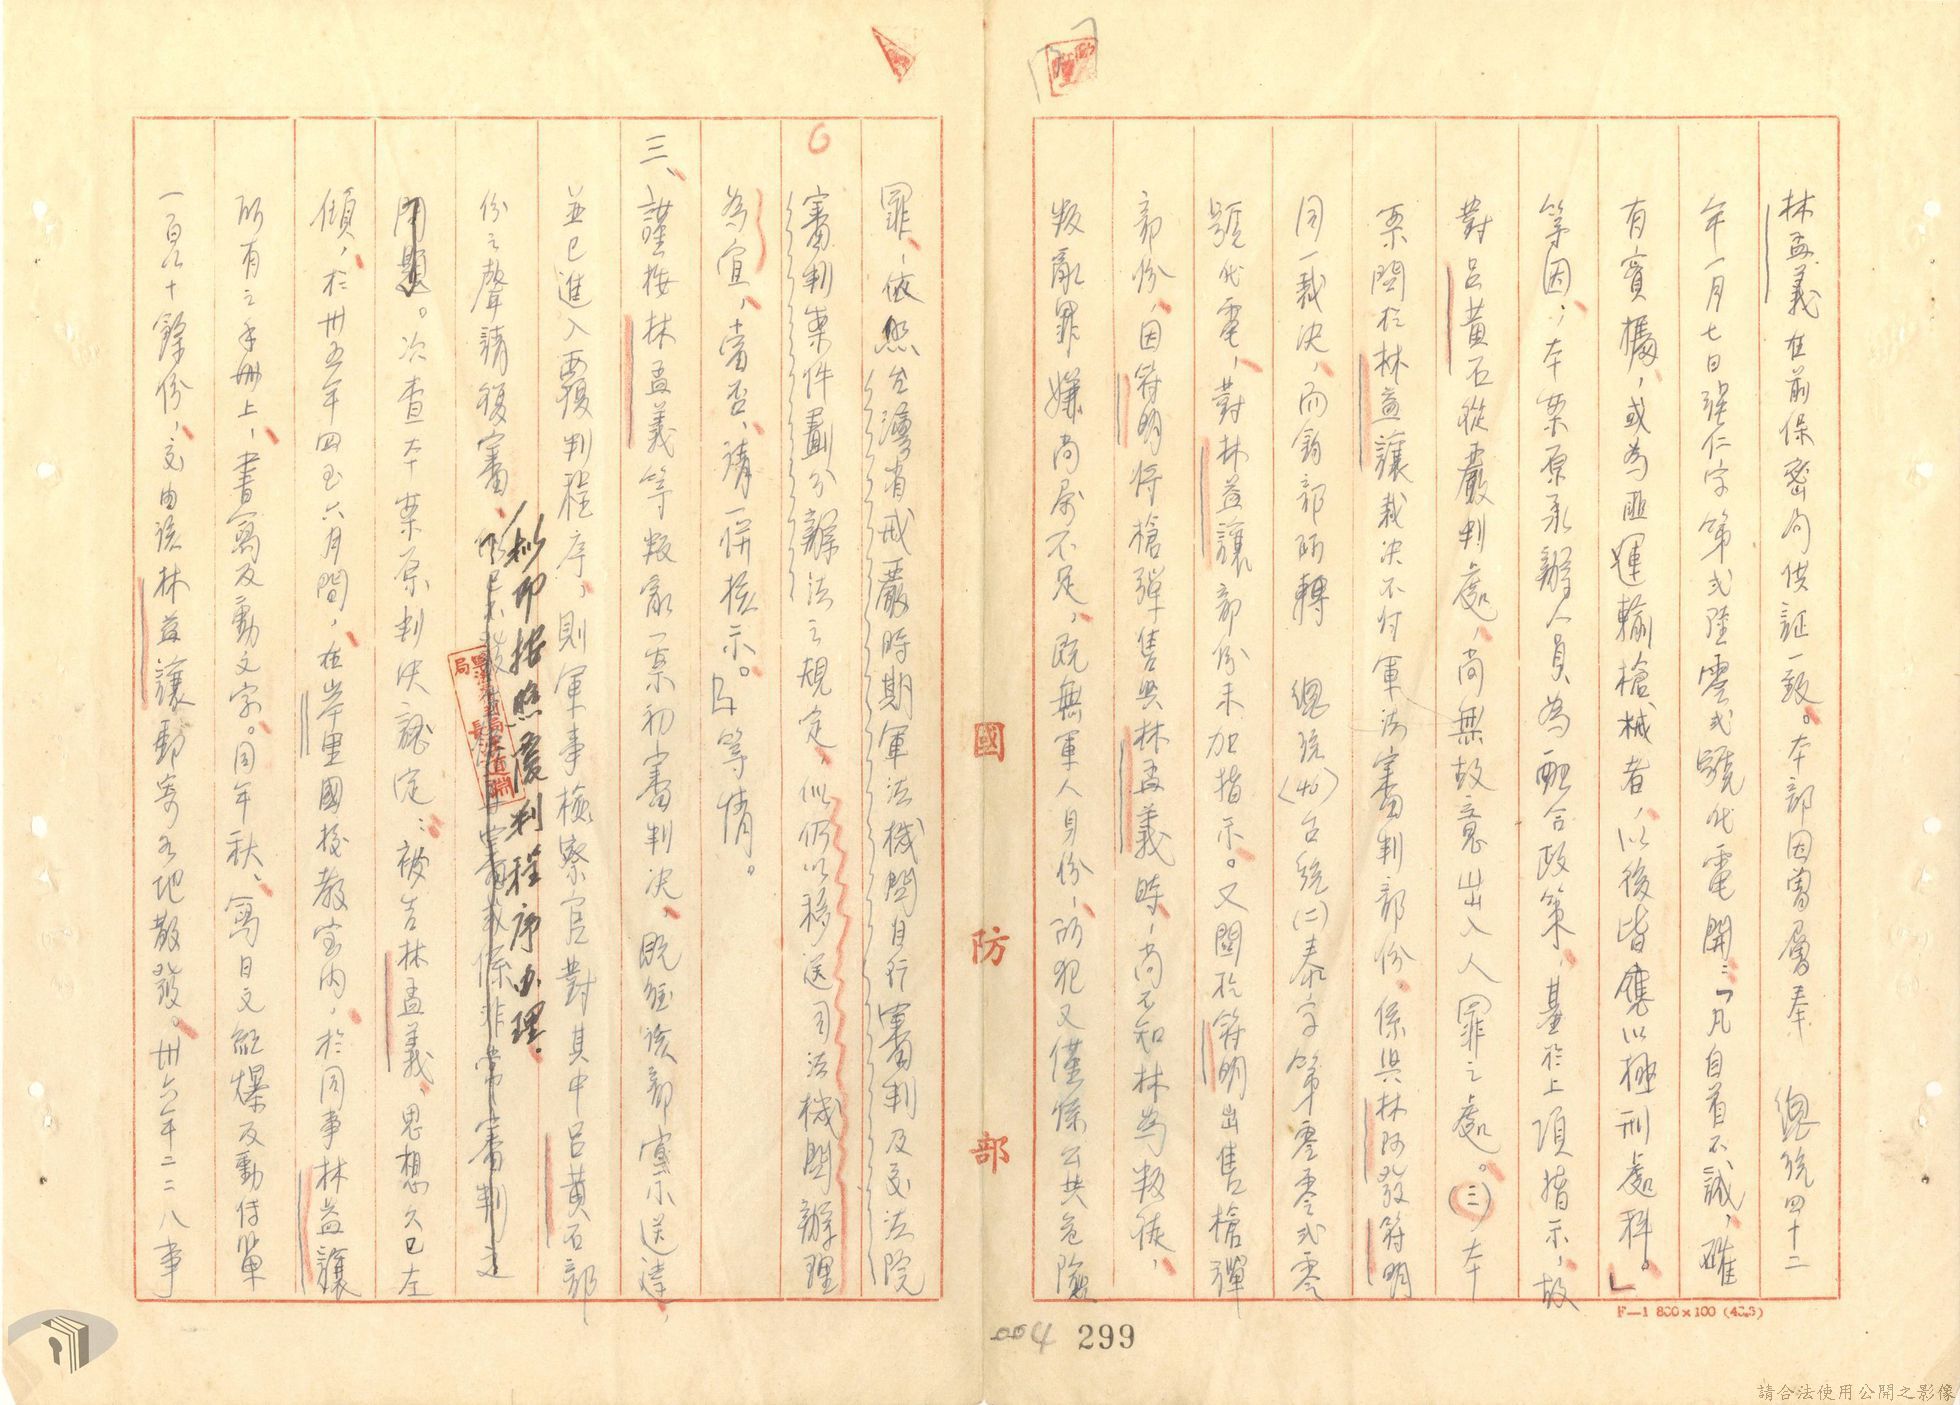 林孟義在前保密局供証一致。本部因曾層奉 總統四十二
年一月七日強仁字第弍陸零弍號代電開：「凡自首不誠，確
有實據，或為匪運輸槍械者，以後皆應以極刑處科。」
等因，本案原承辦人員為配合政策，基於上項指示，故
對呂黃石從嚴判處，尚無故意出入人罪之處。(三)本
案關於林益讓裁決不付軍法審判部份，係與林阿發符明
同一裁決，而鈞部所轉 總統(46)台統(二)泰字第零零弍零
號代電，對林益讓部份未加指示。又關於符明出售槍彈
部份，因符明將槍彈售與林孟義時，尚不知林為叛徒，
叛亂罪嫌尚屬不足，既無軍人身份，所犯又僅係公共危險
國防部
罪，依照台灣省戒嚴時期軍法機關自行審判及交法院
審判案件劃分辦法之規定，似仍以移送司法機關辦理
為宜，當否，請一併核示。」等情。
三、謹按林孟義等叛亂一案初審判決，既經該部稟示送達，
並已進入覆判程序，則軍事檢察官對其中呂黃石部
份之聲請復審，擬即按照覆判程序办理。
次查本案原判決認定：被告林孟義，思想久已左
傾，於卅五年四至六月間，在岸里國校教室內，於同事林益讓
所有之手冊上，書寫反動文字。同年秋，寫日文組爆反動傳單
一百八十餘份，交由該林益讓郵寄各地散發。卅六年二二八事
F—1 800×100 (46.3)
004 299
請合法使用公開之影像